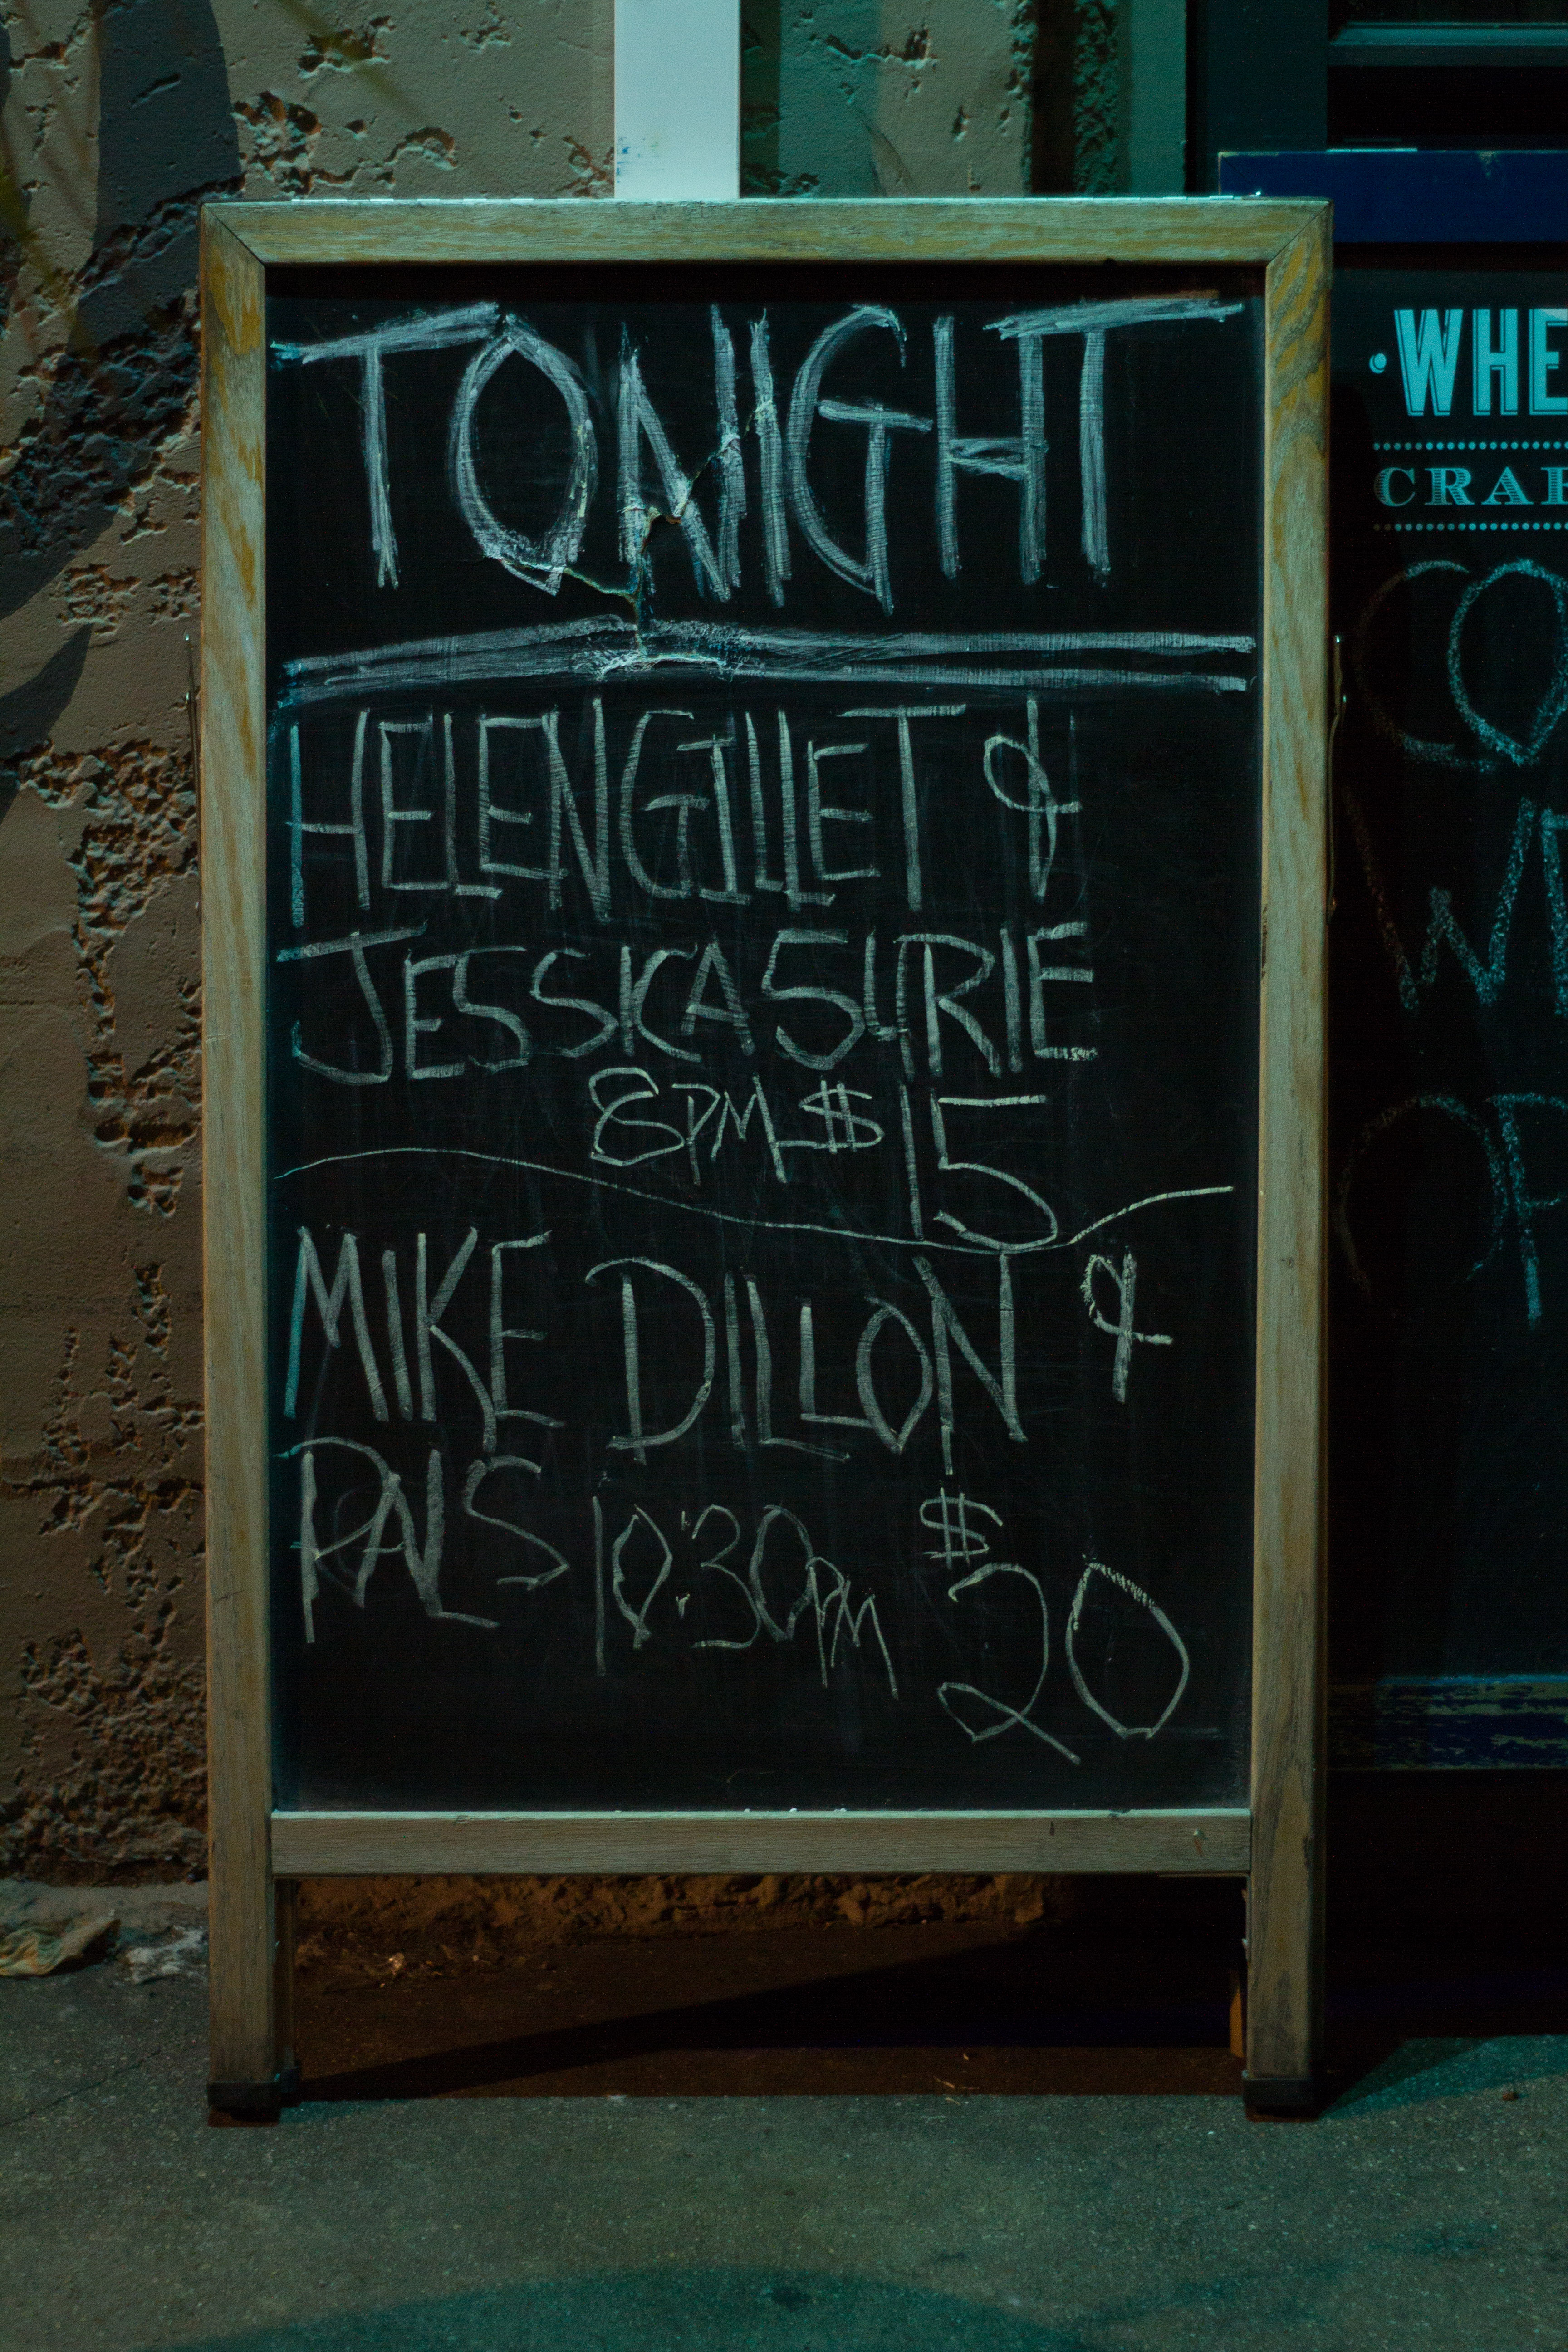 TONIGHT
HELEN GILLET &
JESSICA SURIE
8PM $15
MIKE DILLON &
PALS 10:30PM $20
WHE
CRAF
CO
OP